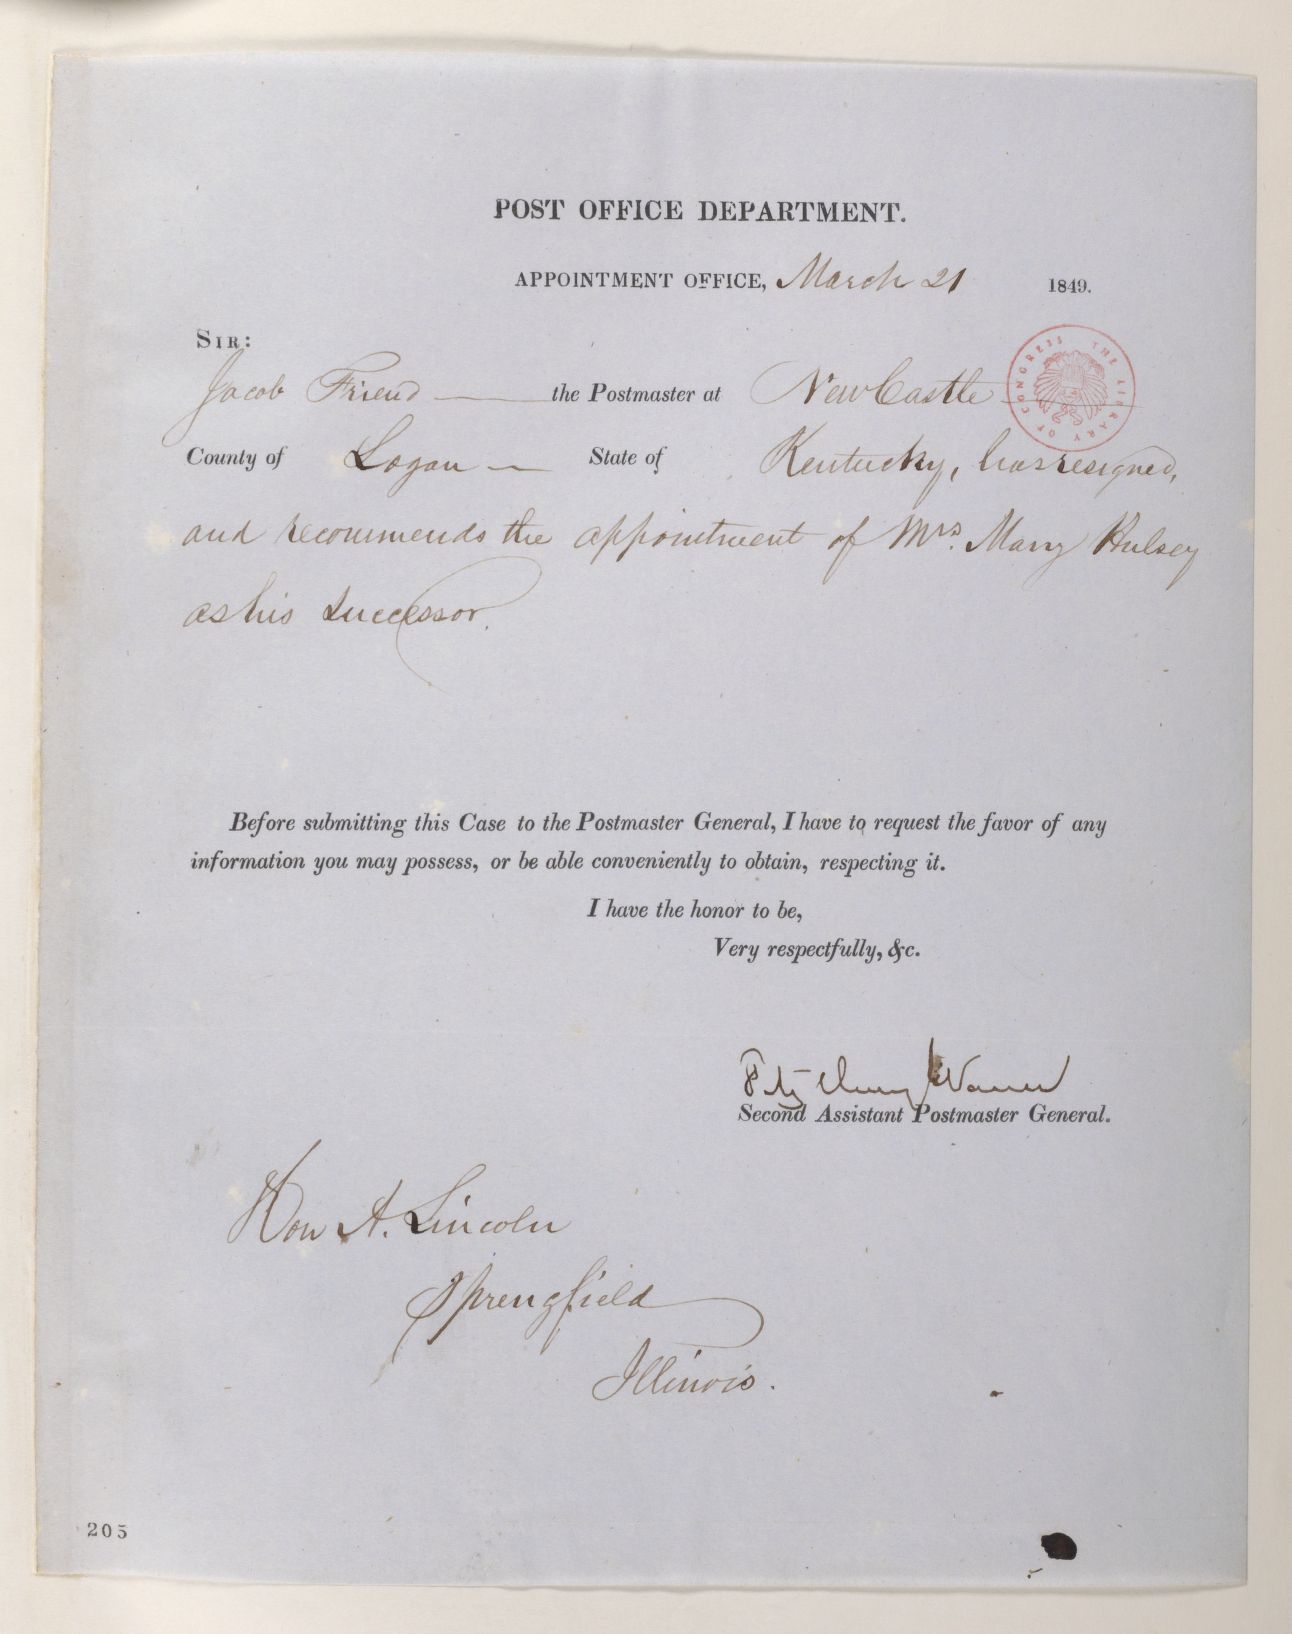 POST OFFICE DEPARTMENT.
APPOINTMENT OFFICE, March 21 1849.
SIR:
Jacob Friend the Postmaster at New Castle
County of Logan State of Kentucky, has resigned,
and recommends the appointment of Mrs. Mary Hulsey
as his successor.
THE LIBRARY OF CONGRESS
Before submitting this Case to the Postmaster General, I have to request the favor of any
information you may possess, or be able conveniently to obtain, respecting it.
I have the honor to be,
Very respectfully, &c.
Fitz Henry Warren
Second Assistant Postmaster General.
Hon A. Lincoln
Springfield
Illinois.
205